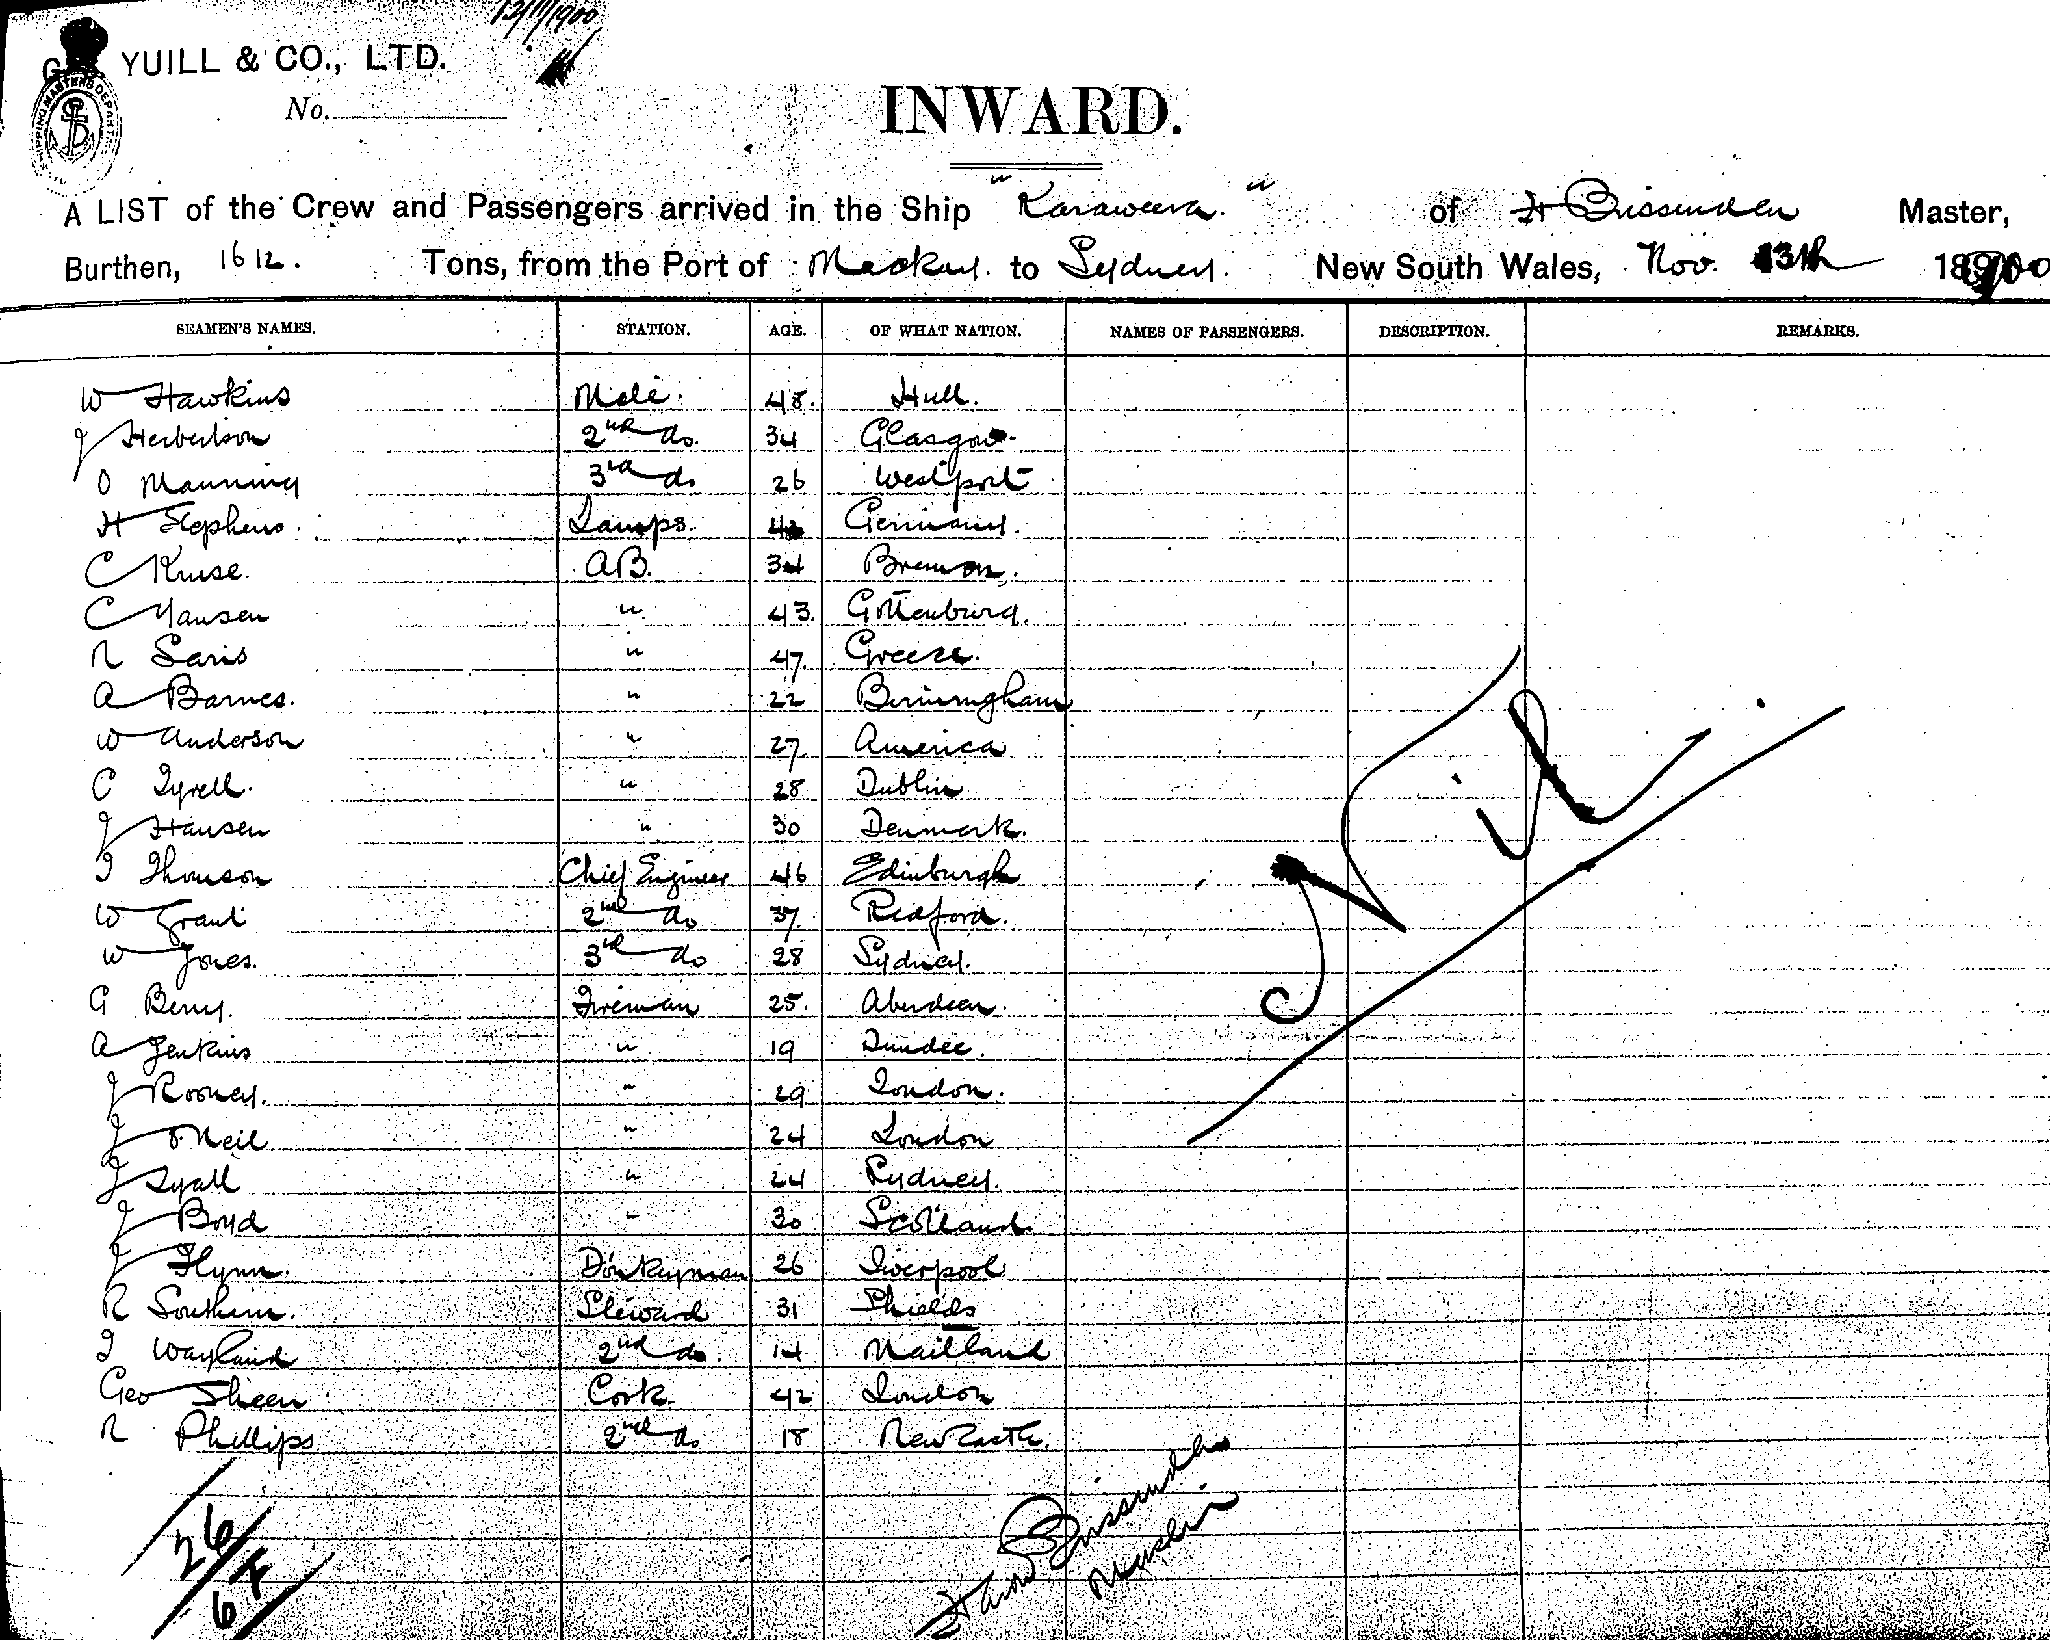 13/11/1900
G. S. YUILL & CO., LTD.
No.
INWARD.
A LIST of the Crew and Passengers arrived in the Ship "Karaweera" of H Brissenden Master,
Burthen, 1612. Tons, from the Port of Mackay. to Sydney. New South Wales, Nov. 13th 1900
SEAMEN'S NAMES. STATION. AGE. OF WHAT NATION. NAMES OF PASSENGERS. DESCRIPTION. REMARKS.
W Hawkins Mate. 48. Hull.
J Herbertson 2nd do. 34 Glasgow.
O Manning 3rd do 26 Westport
H Stephens. Lamps. Germany.
C Kruse. AB. 34 Bremen.
C Hansen " 43. Gottenburg.
N Saris " 47. Greece.
A Barnes. " 22 Birmingham
W Anderson " 27. America
C Tyrell. " 28 Dublin
J Hansen " 30 Denmark.
T Thomson Chief Engineer 46 Edinburgh
W Grant 2nd do 37. Redford.
W Jones. 3rd do 28 Sydney.
G Berry. Fireman 25. Aberdeen.
A Jenkins " 19 Dundee.
J Rooney. " 29 London.
J O'Neil " 24 London
J Lyall " 24 Sydney.
J Boyd " 30 Scotland.
J Flynn. Donkeyman 26 Liverpool
R Southern. Steward 31 Shields
T Wayland 2nd do. 14 Maitland
Geo Sheen Cook. 42 London
R Phillips 2nd do 18 Newcastle.
Nil.
26
6
Brissenden
Master